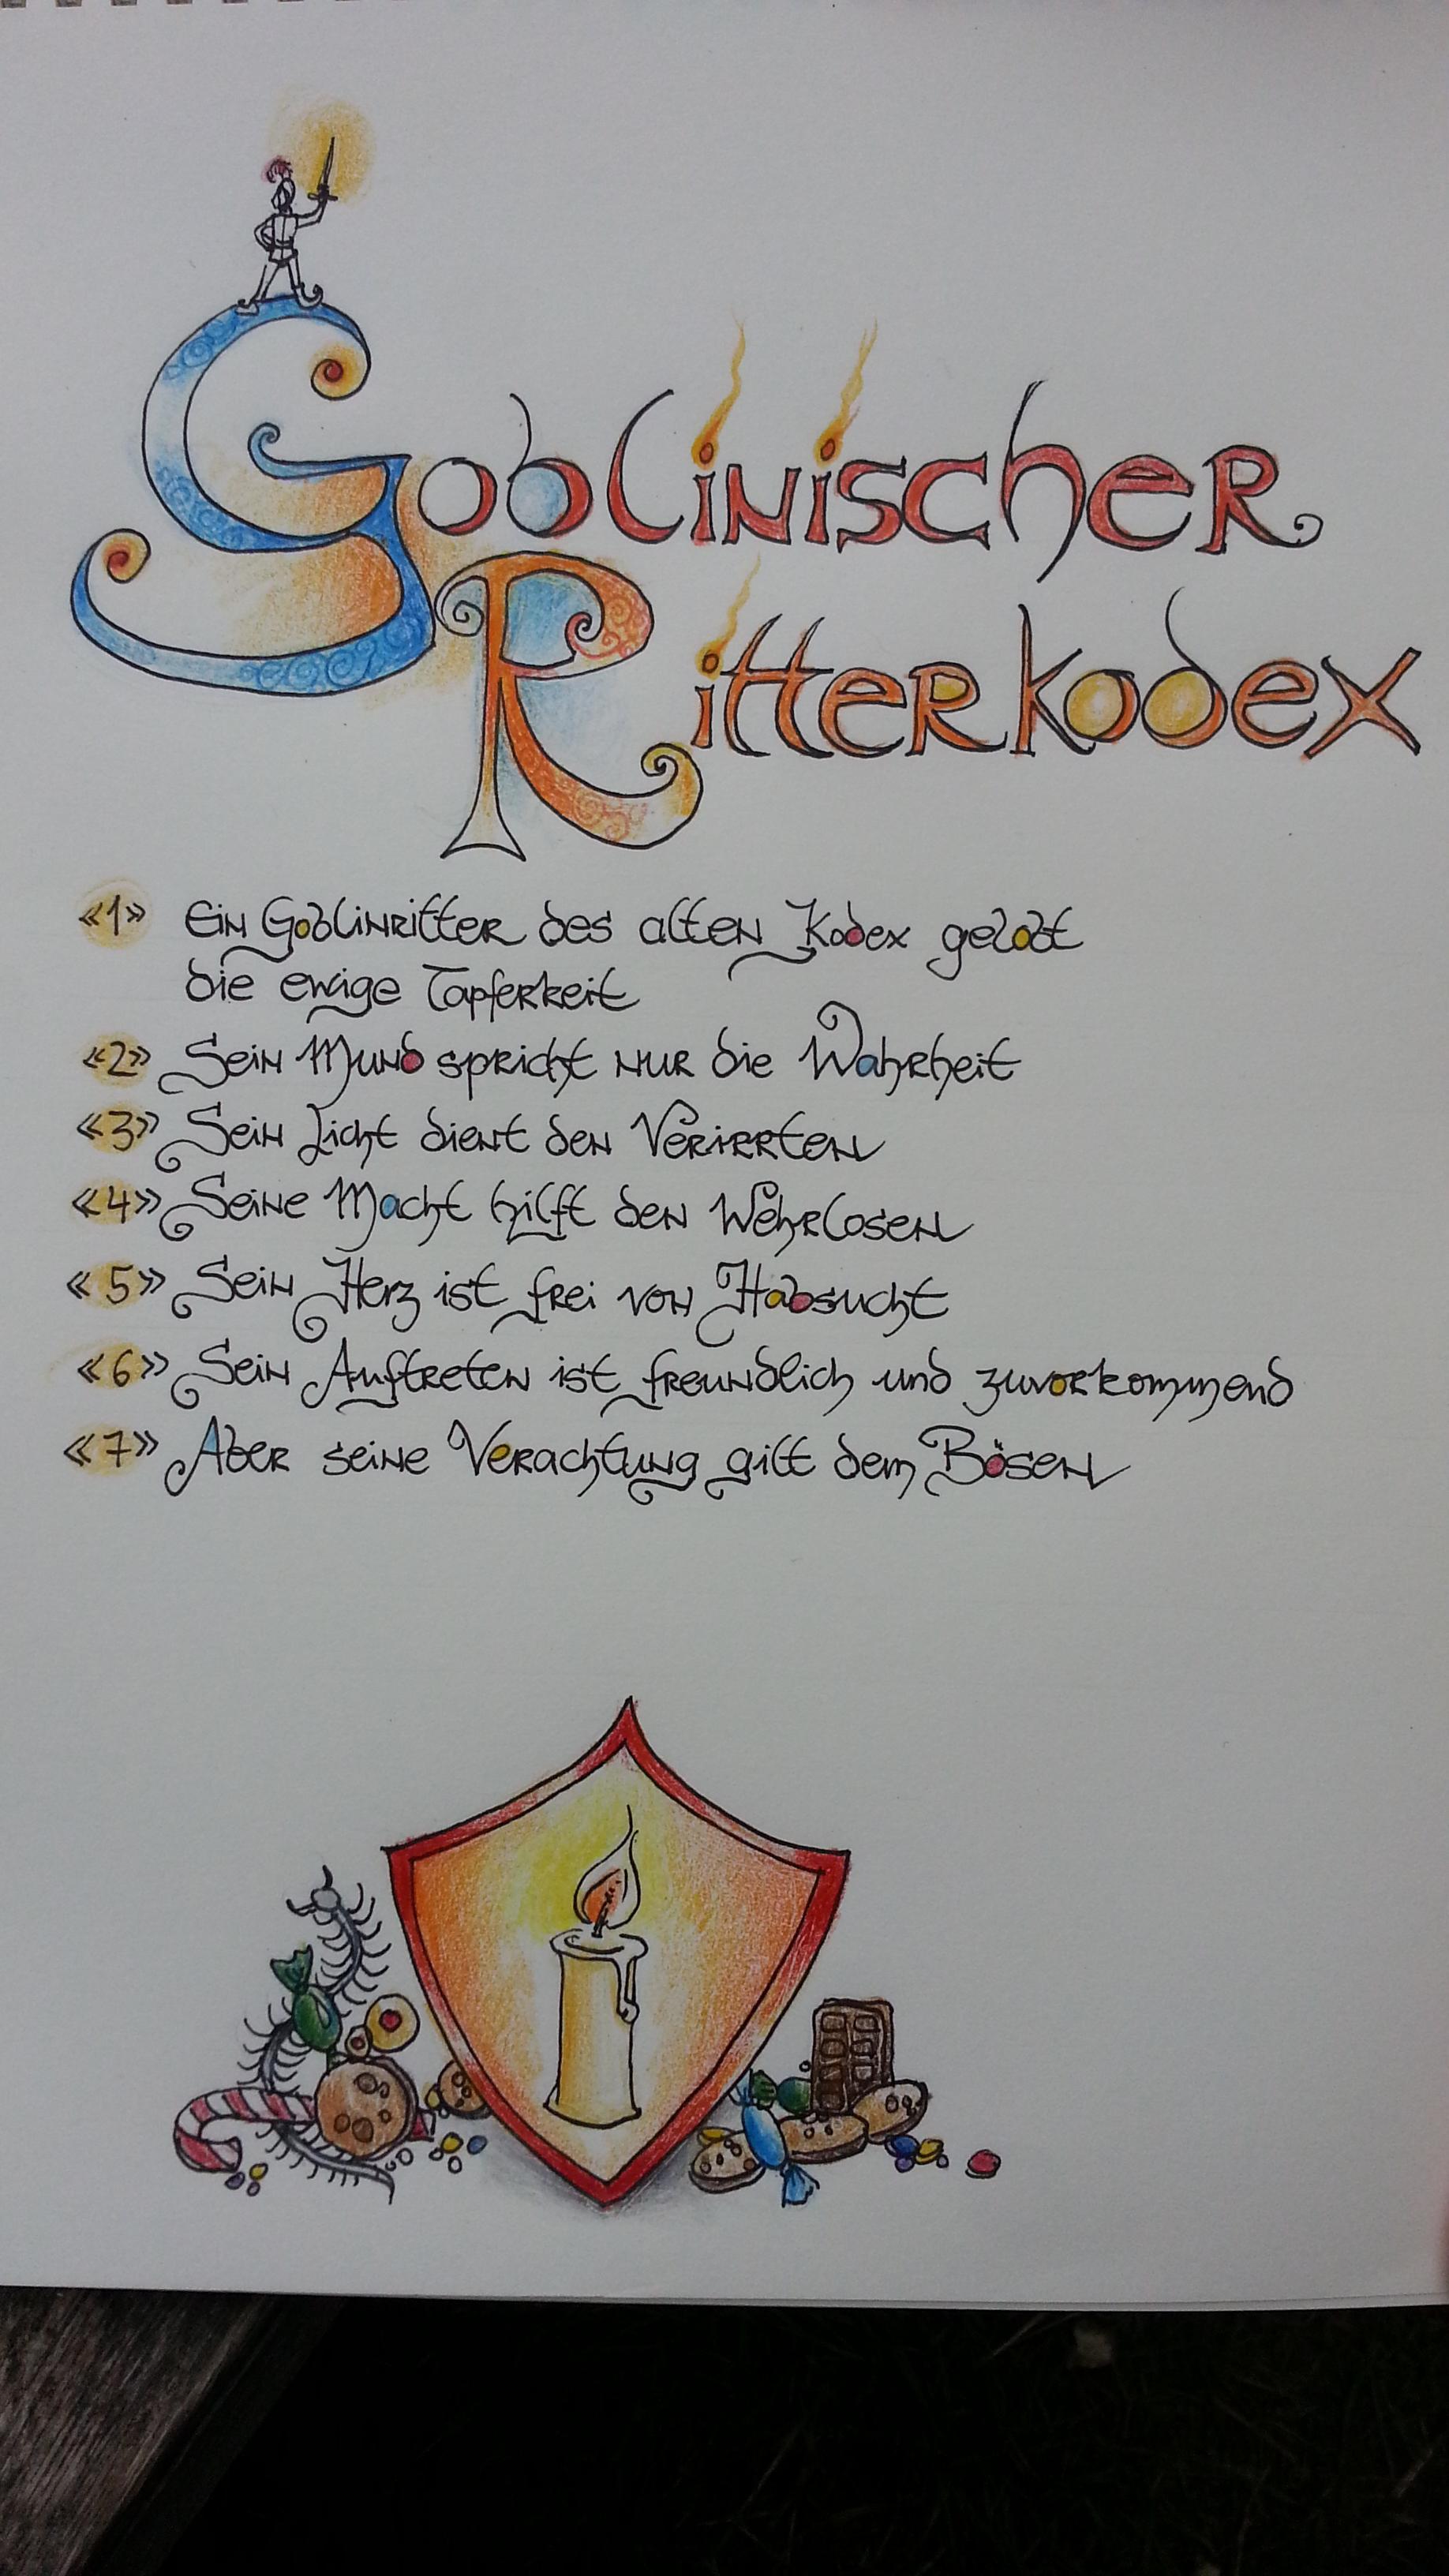 Goblinischer
Ritterkodex
«1» Ein Goblinritter des alten Kodex gelobt
die ewige Tapferkeit
«2» Sein Mund spricht nur die Wahrheit
«3» Sein Licht dient den Verirrten
«4» Seine Macht hilft den Wehrlosen
«5» Sein Herz ist frei von Habsucht
«6» Sein Auftreten ist freundlich und zuvorkommend
«7» Aber seine Verachtung gilt dem Bösen